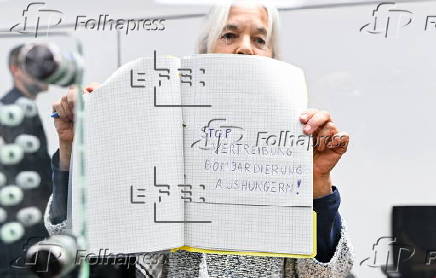 Folhapress
Folhapress
EFE
STOP
VERTREIBUNG
BOMBARDIERUNG
AUSHUNGERN!
Folhapress
EFE
Folhapress
Folhapress